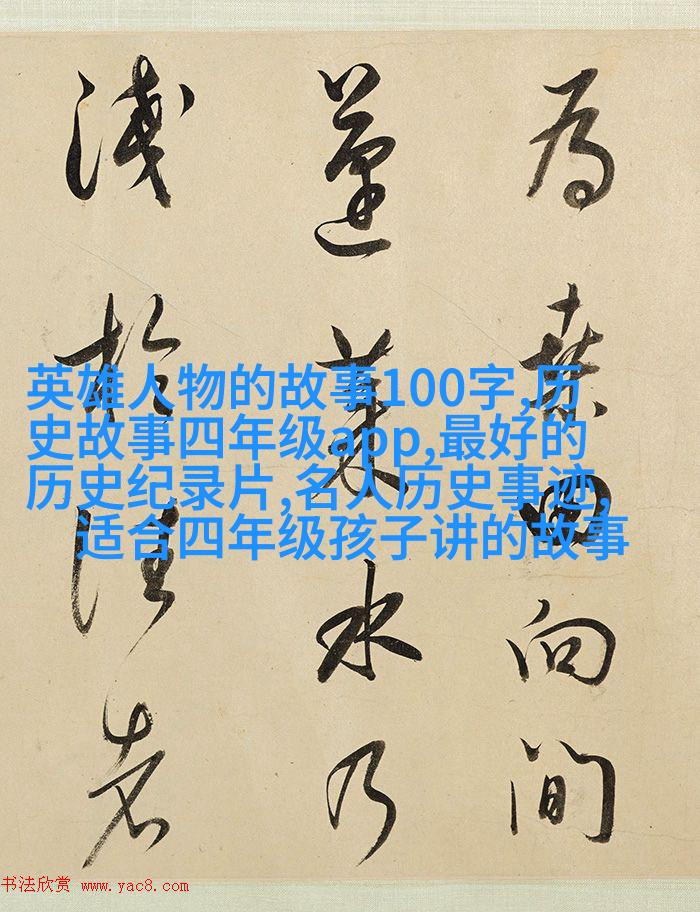 為桑田向間
蓬萊水乃
淺於往者
英雄人物的故事100字,历
史故事四年级app,最好的
历史纪录片,名人历史事迹,
适合四年级孩子讲的故事
书法欣赏 www.yac8.com